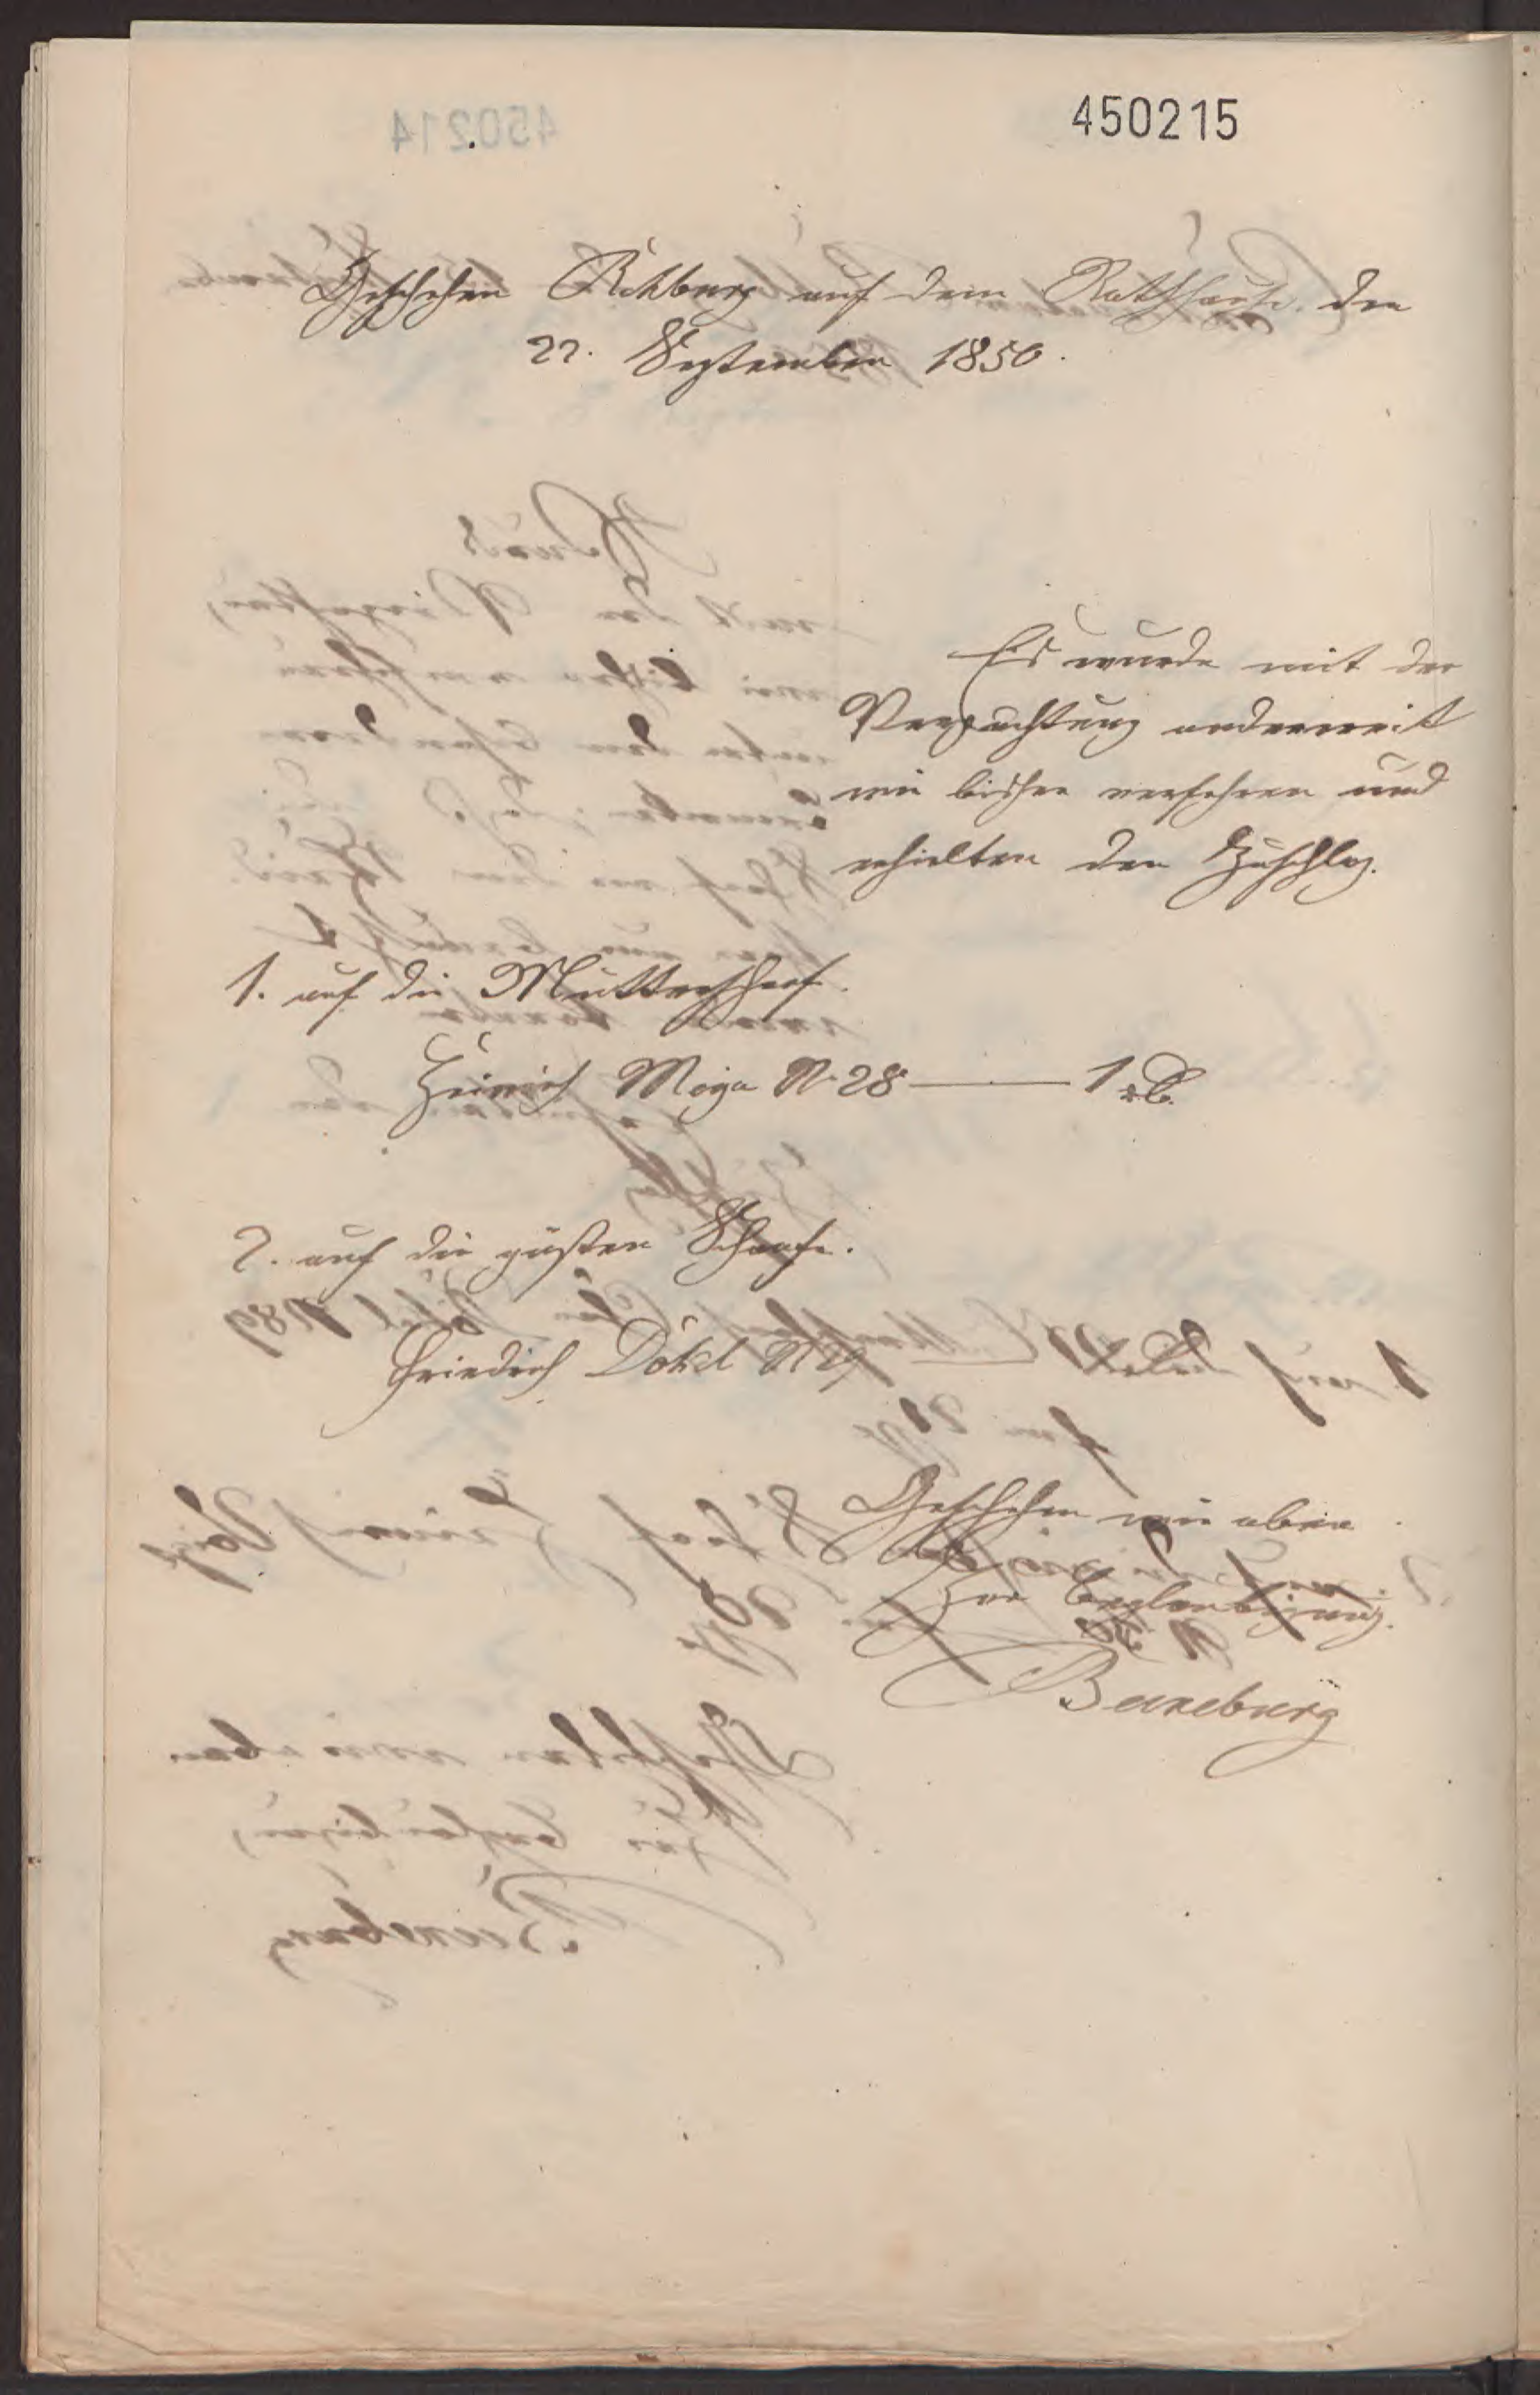 450215
Geschehen Rehburg auf dem Rathhause den
22. September 1850.
Es wurde mit der
Verpachtung anderweit
wie bisher verfahren und
erhielten den Zuschlag.
1. auf die Mutterschafe.
Heinrich Meyer N. 28 — 1 rℓ.
2. auf die güsten Schaafe.
Friedrich Dökel N 29
Geschehen wie oben
Zur Beglaubigung.
Beuneburg